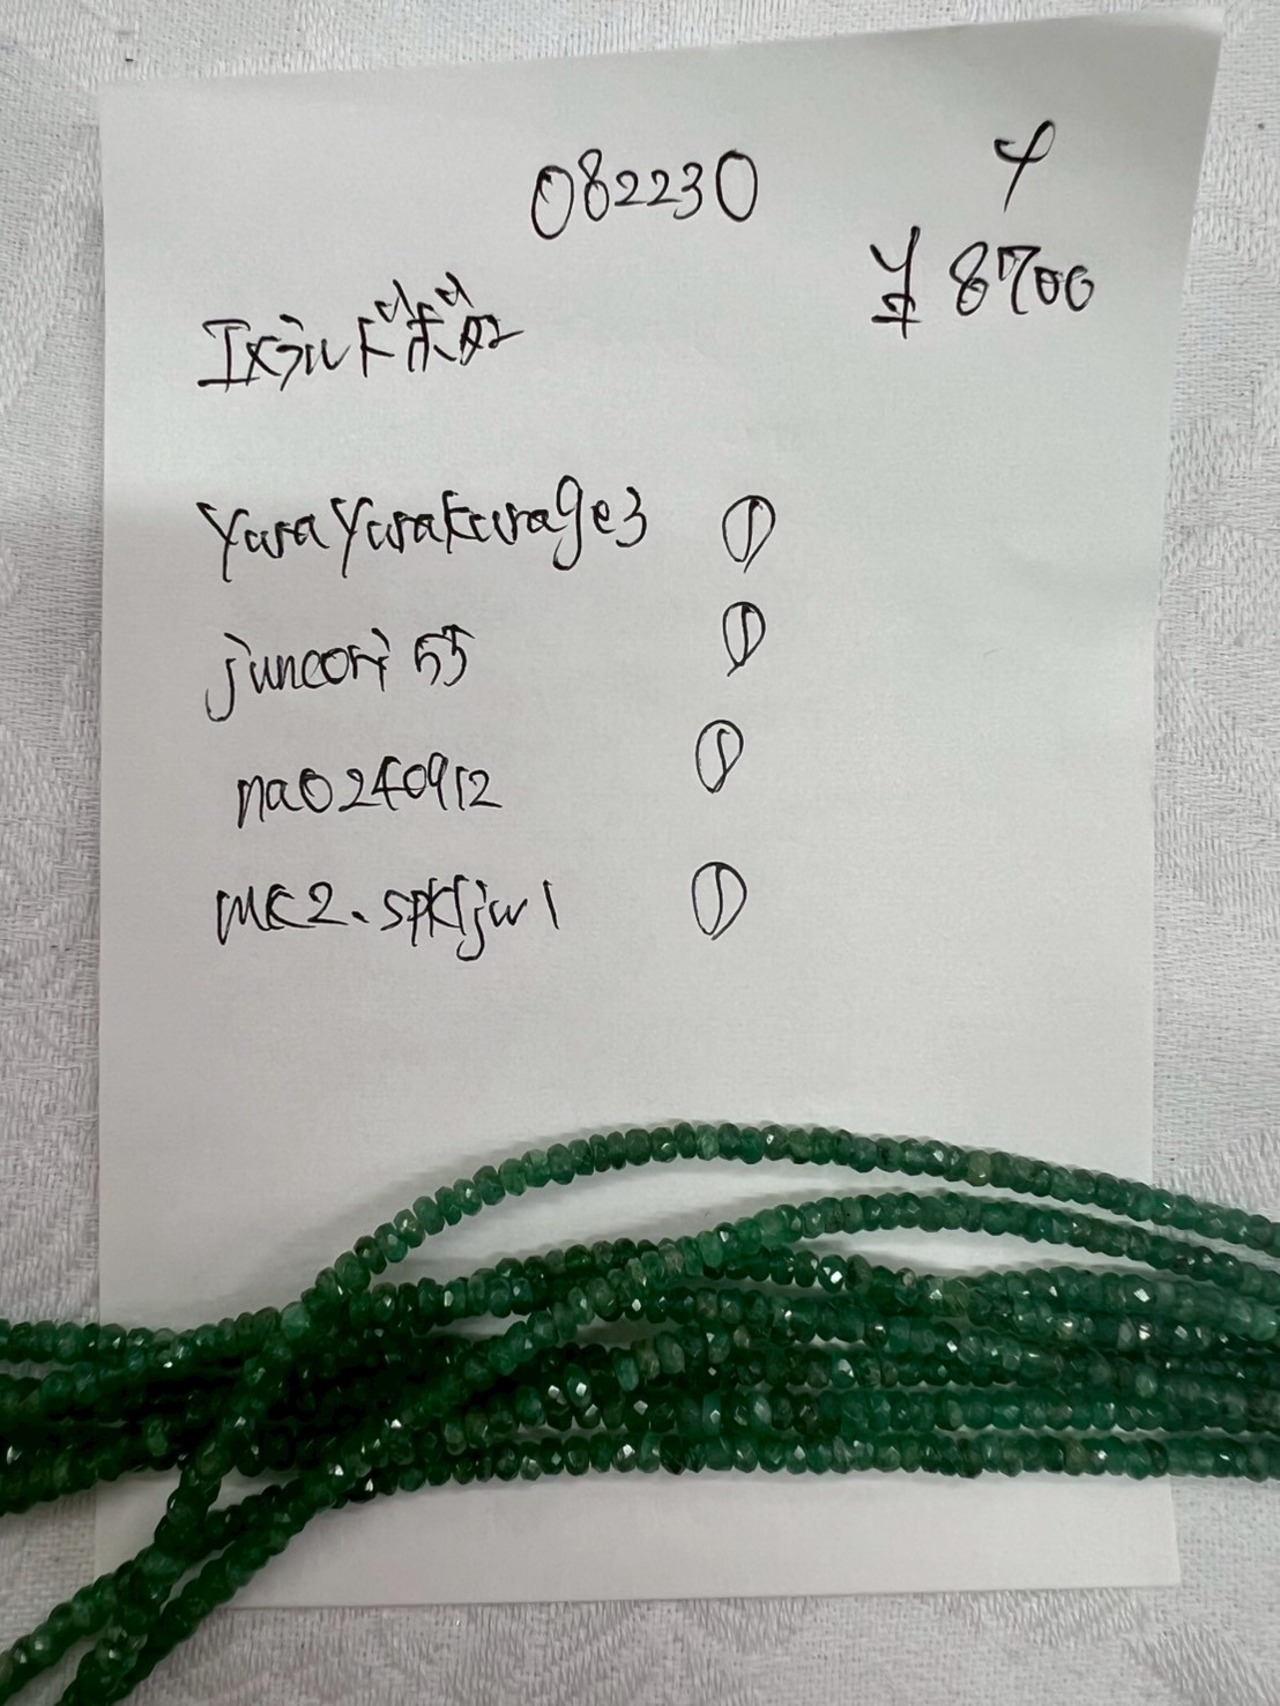 082230 4
¥8700
エメラルド 小 AB
yurayurakurage3 ①
juncori55 ①
na0240912 ①
mk2.spkljw1 ①